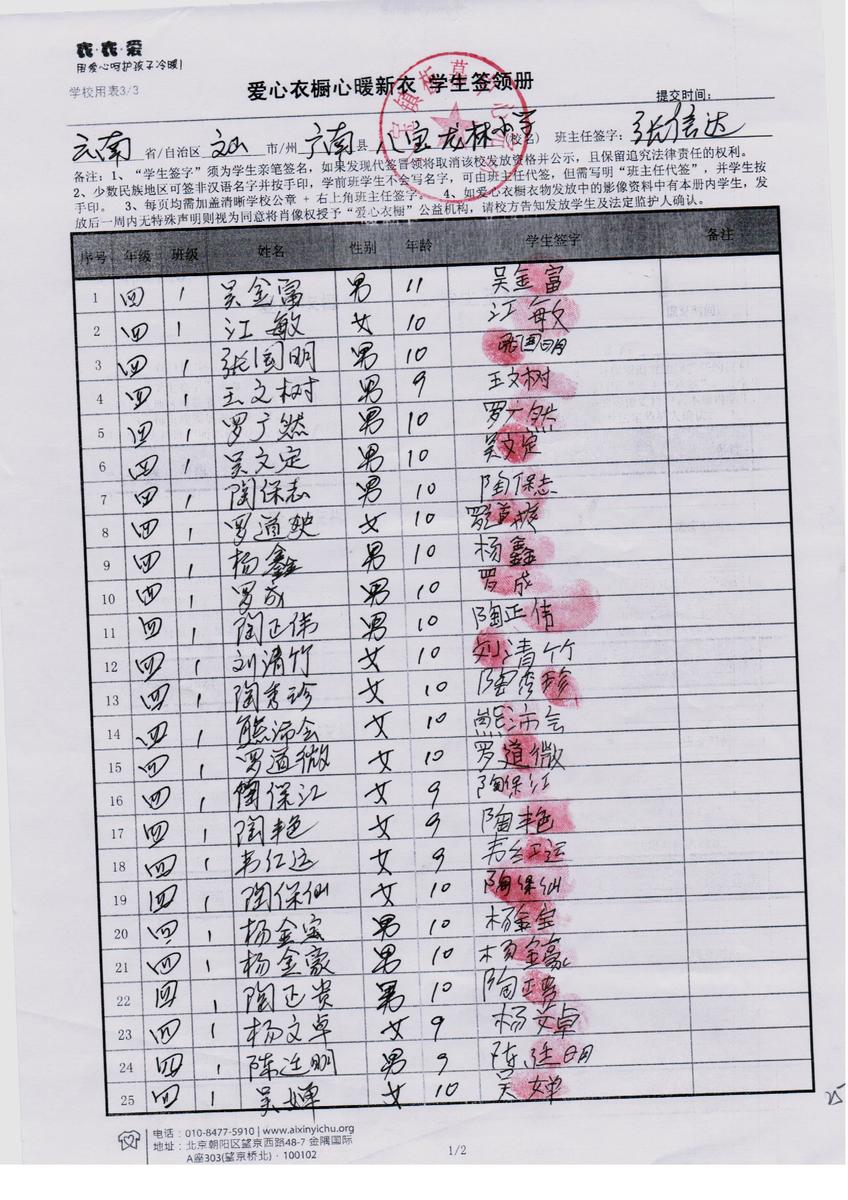 衣·衣·爱
用爱心呵护孩子冷暖!
学校用表3/3
爱心衣橱心暖新衣 学生签领册
提交时间:
云南 省/自治区 文山 市/州 广南 县 八宝龙林小学 (校名) 班主任签字: 张信达
备注:1、“学生签字”须为学生亲笔签名,如果发现代签冒领将取消该校发放资格并公示,且保留追究法律责任的权利。
2、少数民族地区可签非汉语名字并按手印,学前班学生不会写名字,可由班主任代签,但需写明“班主任代签”,并学生按
手印。 3、每页均需加盖清晰学校公章 + 右上角班主任签字。 4、如爱心衣橱衣物发放中的影像资料中有本册内学生,发
放后一周内无特殊声明则视为同意将肖像权授予“爱心衣橱”公益机构,请校方告知发放学生及法定监护人确认。
序号 年级 班级 姓名 性别 年龄 学生签字 备注
1 四 1 吴金富 男 11 吴金富
2 四 1 江敏 女 10 江敏
3 四 1 张国明 男 10 张国明
4 四 1 王文树 男 9 王文树
5 四 1 罗广然 男 10 罗广然
6 四 1 吴文定 男 10 吴文定
7 四 1 陶保志 男 10 陶保志
8 四 1 罗道 女 10 罗道
9 四 1 杨鑫 男 10 杨鑫
10 四 1 罗成 男 10 罗成
11 四 1 陶正伟 男 10 陶正伟
12 四 1 刘清竹 女 10 刘清竹
13 四 1 陶秀珍 女 10 陶秀珍
14 四 1 熊沛会 女 10 熊沛会
15 四 1 罗道微 女 10 罗道微
16 四 1 陶保江 女 9 陶保江
17 四 1 陶艳 女 9 陶艳
18 四 1 韦红运 女 9 韦红运
19 四 1 陶保仙 女 10 陶保仙
20 四 1 杨金宝 男 10 杨金宝
21 四 1 杨金豪 男 10 杨金豪
22 四 1 陶正贵 男 10 陶正贵
23 四 1 杨文卓 女 9 杨文卓
24 四 1 陈连明 男 9 陈连明
25 四 1 吴婵 女 10 吴婵
25
电话:010-8477-5910 | www.aixinyichu.org
地址:北京朝阳区望京西路48-7 金隅国际
A座303(望京桥北)· 100102
1/2